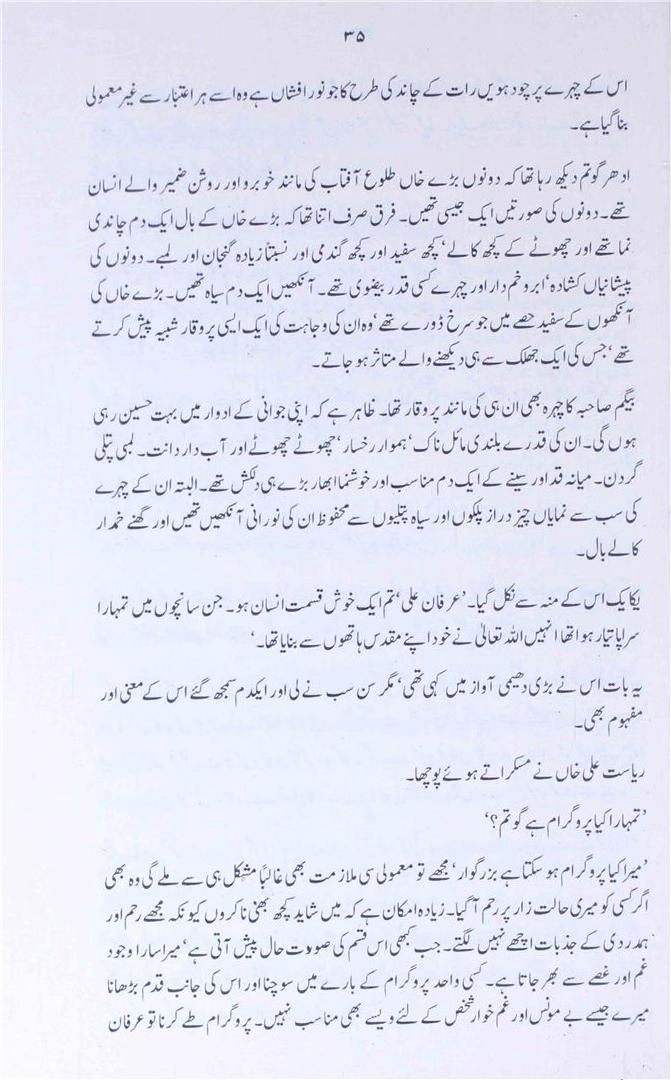 ۳۵
اس کے چہرے پر چودہویں رات کے چاند کی طرح کا جو نور افشاں ہے وہ اسے ہر اعتبار سے غیر معمولی
بنا گیا ہے۔
ادھر گوتم دیکھ رہا تھا کہ دونوں بڑے خاں طلوع آفتاب کی مانند خوبرو اور روشن ضمیر والے انسان
تھے۔ دونوں کی صورتیں ایک جیسی تھیں۔ فرق صرف اتنا تھا کہ بڑے خاں کے بال ایک دم چاندی
نما تھے اور چھوٹے کے کچھ کالے، کچھ سفید اور کچھ گندمی اور نسبتاً زیادہ گنجان اور لمبے۔ دونوں کی
پیشانیاں کشادہ، ابرو خم دار اور چہرے کسی قدر بیضوی تھے۔ آنکھیں ایک دم سیاہ تھیں۔ بڑے خاں کی
آنکھوں کے سفید حصے میں جو سرخ ڈورے تھے، وہ ان کی وجاہت کی ایک ایسی پروقار شبیہ پیش کرتے
تھے، جس کی ایک جھلک سے ہی دیکھنے والے متاثر ہو جاتے۔
بیگم صاحبہ کا چہرہ بھی ان ہی کی مانند پروقار تھا۔ ظاہر ہے کہ اپنی جوانی کے ادوار میں بہت حسین رہی
ہوں گی۔ ان کی قدرے بلندی مائل ناک، ہموار رخسار، چھوٹے چھوٹے اور آب دار دانت۔ لمبی پتلی
گردن۔ میانہ قد اور سینے کے ایک دم مناسب اور خوشنما ابھار بڑے ہی دلکش تھے۔ البتہ ان کے چہرے
کی سب سے نمایاں چیز دراز پلکوں اور سیاہ پتلیوں سے محفوظ ان کی نورانی آنکھیں تھیں اور گھنے خمدار
کالے بال۔
یکایک اس کے منہ سے نکل گیا۔ ’عرفان علی، تم ایک خوش قسمت انسان ہو۔ جن سانچوں میں تمہارا
سراپا تیار ہوا تھا انہیں اللہ تعالیٰ نے خود اپنے مقدس ہاتھوں سے بنایا تھا۔‘
یہ بات اس نے بڑی دھیمی آواز میں کہی تھی، مگر سن سب نے لی اور ایکدم سمجھ گئے اس کے معنی اور
مفہوم بھی۔
ریاست علی خاں نے مسکراتے ہوئے پوچھا۔
’تمہارا کیا پروگرام ہے گوتم؟‘
’میرا کیا پروگرام ہو سکتا ہے بزرگوار، مجھے تو معمولی سی ملازمت بھی غالباً مشکل ہی سے ملے گی وہ بھی
اگر کسی کو میری حالت زار پر رحم آ گیا۔ زیادہ امکان ہے کہ میں شاید کچھ بھی ناکروں کیونکہ مجھے رحم اور
ہمدردی کے جذبات اچھے نہیں لگتے۔ جب کبھی اس قسم کی صورت حال پیش آتی ہے، میرا سارا وجود
غم اور غصے سے بھر جاتا ہے۔ کسی واحد پروگرام کے بارے میں سوچنا اور اس کی جانب قدم بڑھانا
میرے جیسے بے مونس اور غم خوار شخص کے لئے ویسے بھی مناسب نہیں۔ پروگرام طے کرنا تو عرفان